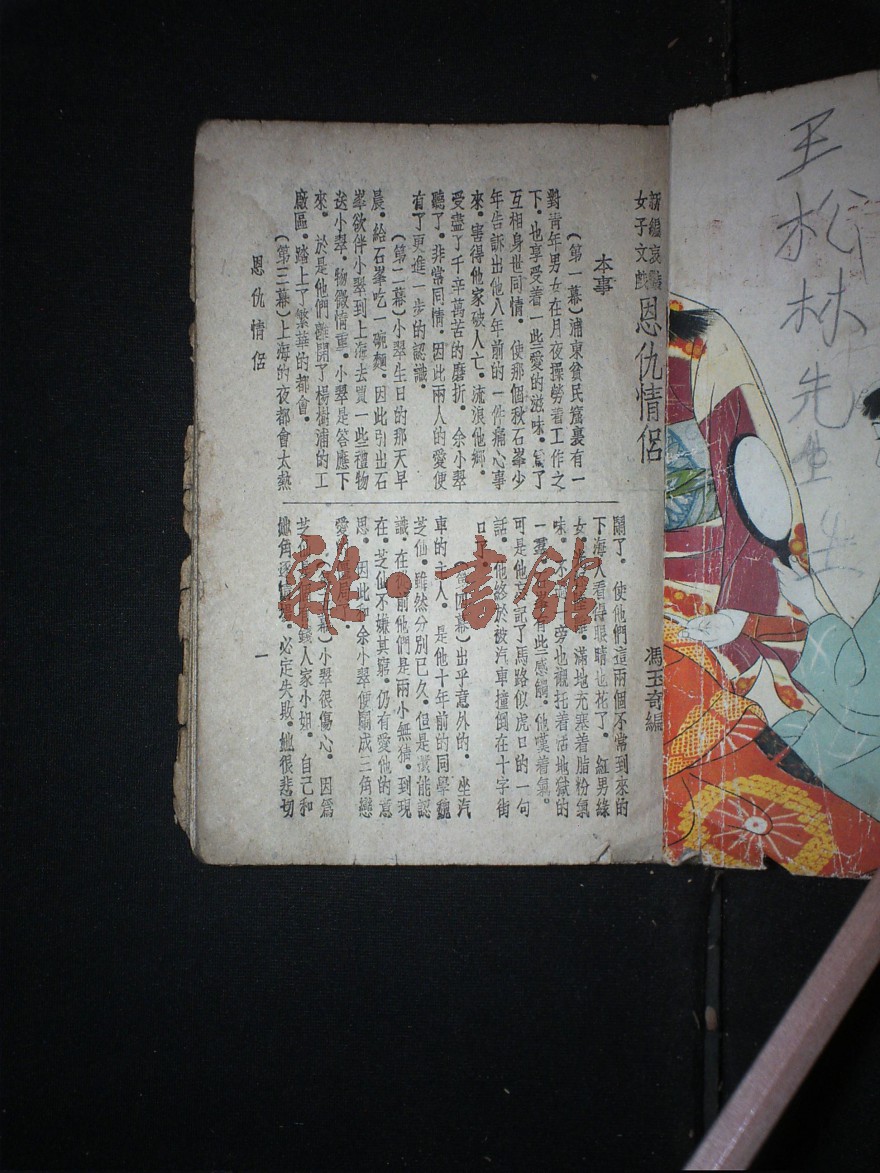 王松林先生
新編哀艷
女子文戲
恩仇情侶
馮玉奇編
本事
(第一幕)浦東貧民窟裏有一
對青年男女在月夜操勞着工作之
下。也享受着一些愛的滋味。爲了
互相身世同情。使那個秋石峯少
年告訴出他八年前的一件痛心事
來。害得他家破人亡。流浪他鄉。
受盡了千辛萬苦的磨折。余小翠
聽了。非常同情。因此兩人的愛便
有了更進一步的認識。
(第二幕)小翠生日的那天早
晨。給石峯吃一碗麵。因此引出石
峯欲伴小翠到上海去買一些禮物
送小翠。物微情重。小翠是答應下
來。於是他們離開了楊樹浦的工
廠區。踏上了繁華的都會。
(第三幕)上海的夜都會太熱
鬧了。使他們這兩個不常到來的
下海人看得眼睛也花了。紅男綠
女。滿地充塞着脂粉氣
味。不旁也襯托着活地獄的
一有些感觸。他嘆着氣。
可是他記了馬路似虎口的一句
話。他終於被汽車撞倒在十字街
口
幕)出乎意外的。坐汽
車的主人。是他十年前的同學魏
芝仙。雖然分別已久。但是還能認
識。在前他們是兩小無猜。到現
在。芝仙不嫌其窮。仍有愛他的意
思。因此和余小翠便鬧成三角戀
愛
幕)小翠很傷心。因爲
芝人家小姐。自己和
她角逐必定失敗。她很悲切
恩仇情侶
一
雜·書館